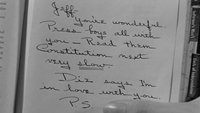 Jeff—
You're wonderful
Press boys all with
you — Read them
Constitution next
very slow.
Diz says I'm
in love with you
PS